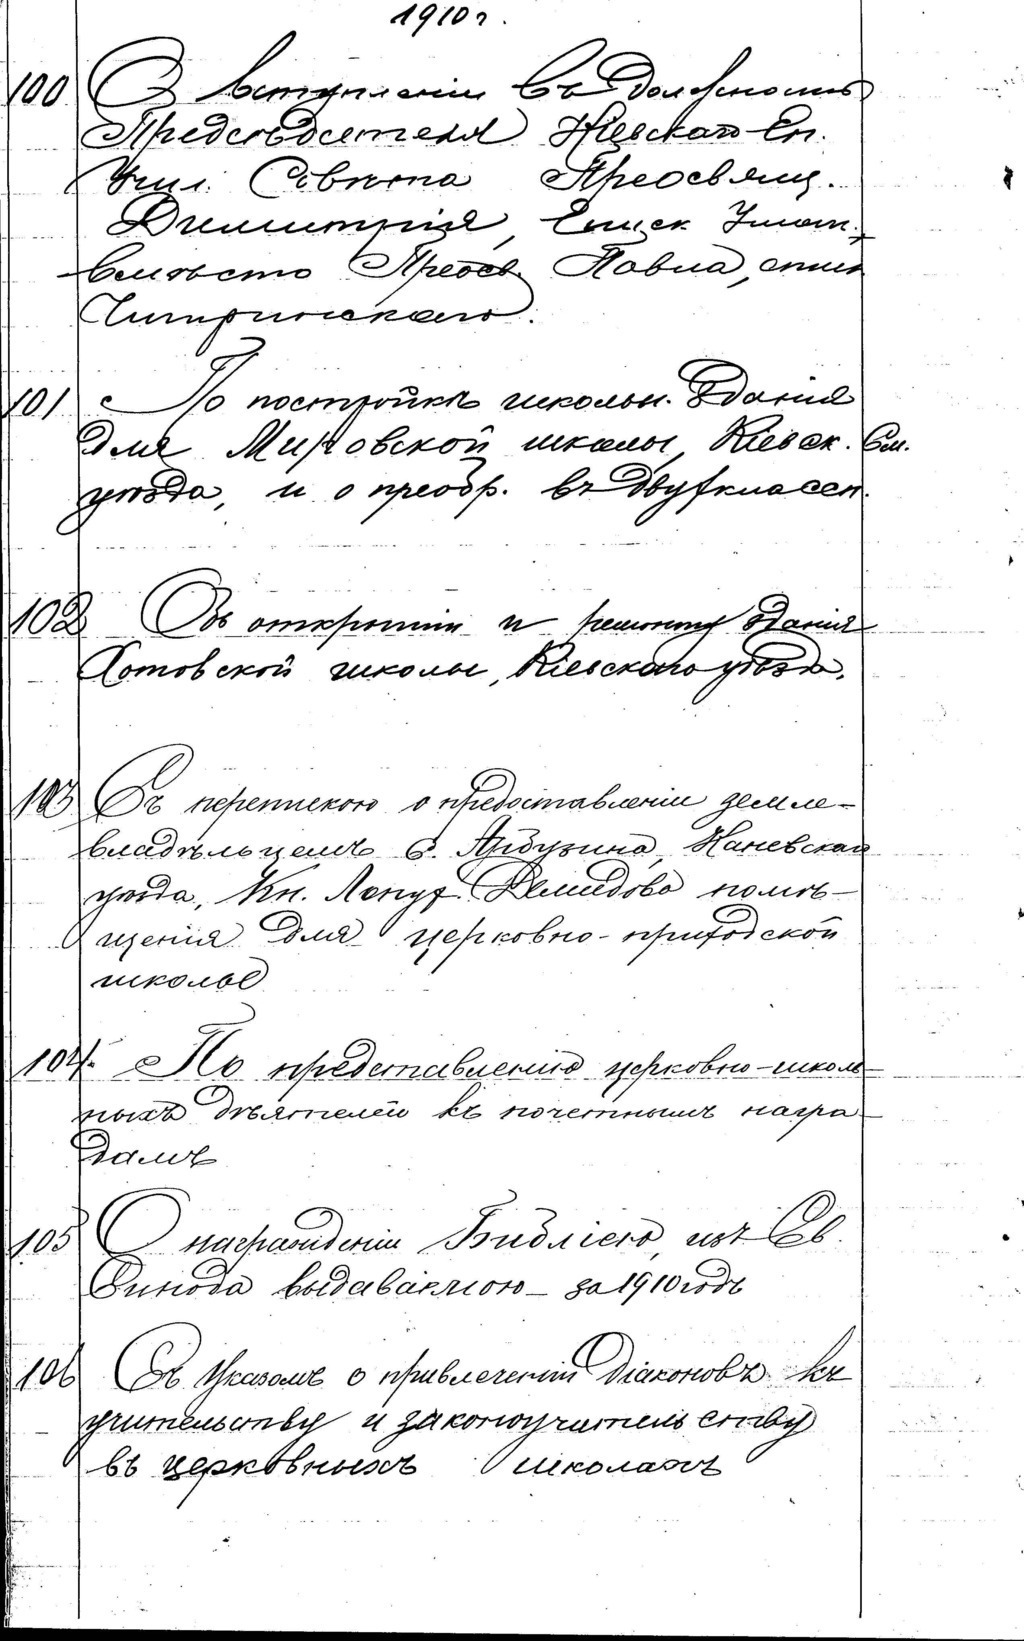 1910 г.
100 О вступленiи въ должность
Председателя Кiевскаго Еп.
Учил. Совѣта Преосвящ.
Димитрiя, Еписк. Уман.,
вмѣсто Преосв. Павла, епис.
Чигиринскаго.
101 По постройкѣ школьн. зданiя
для Мировской школы, Кiевск. См.
уѣзда, и о преобр. въ двухклассн.
102 Объ открытiи и ремонту зданiя
Хотовской школы, Кiевскаго уѣзда.
103 Съ перепискою о предоставленiи земле-
владѣльцемъ с. Арбузина, Каневскаго
уѣзда, Кн. Лопух. Демидовъ помѣ-
щенiя для церковно-приходской
школы
104. По представленiю церковно-школь-
ныхъ дѣятелей къ почетнымъ награ-
дамъ
105 О награжденiи Библiею, изъ Св.
Синода выдаваемою – за 1910 годъ
106 Съ Указомъ о привлеченiи дiаконовъ къ
учительству и законоучительству
въ церковныхъ школахъ